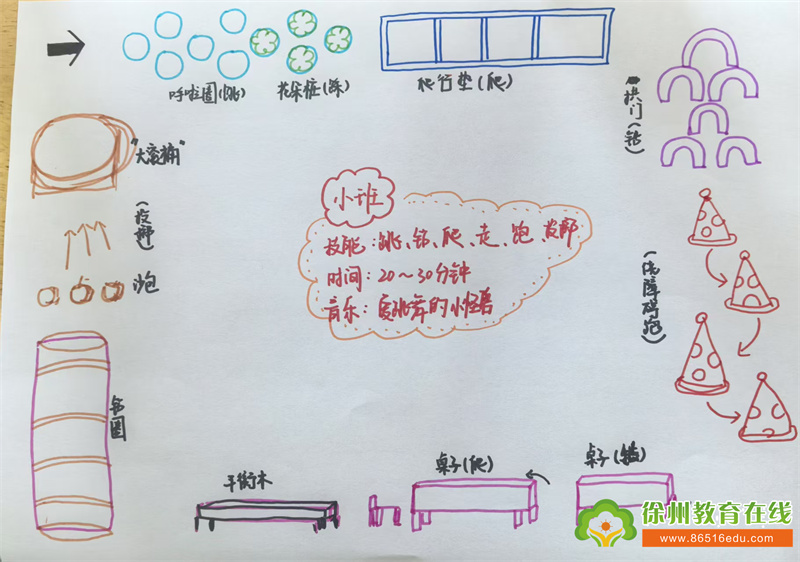 呼啦圈(跳)
花朵桩(踩)
爬行垫(爬)
拱门(钻)
"大灰狼"
(投掷)
沙包
小班
技能:跳、钻、爬、走、跑、投掷
时间:20~30分钟
音乐:爱跳舞的小怪兽
(绕障碍跑)
钻圈
平衡木
桌子(爬)
桌子(钻)
徐州教育在线
www.86516edu.com